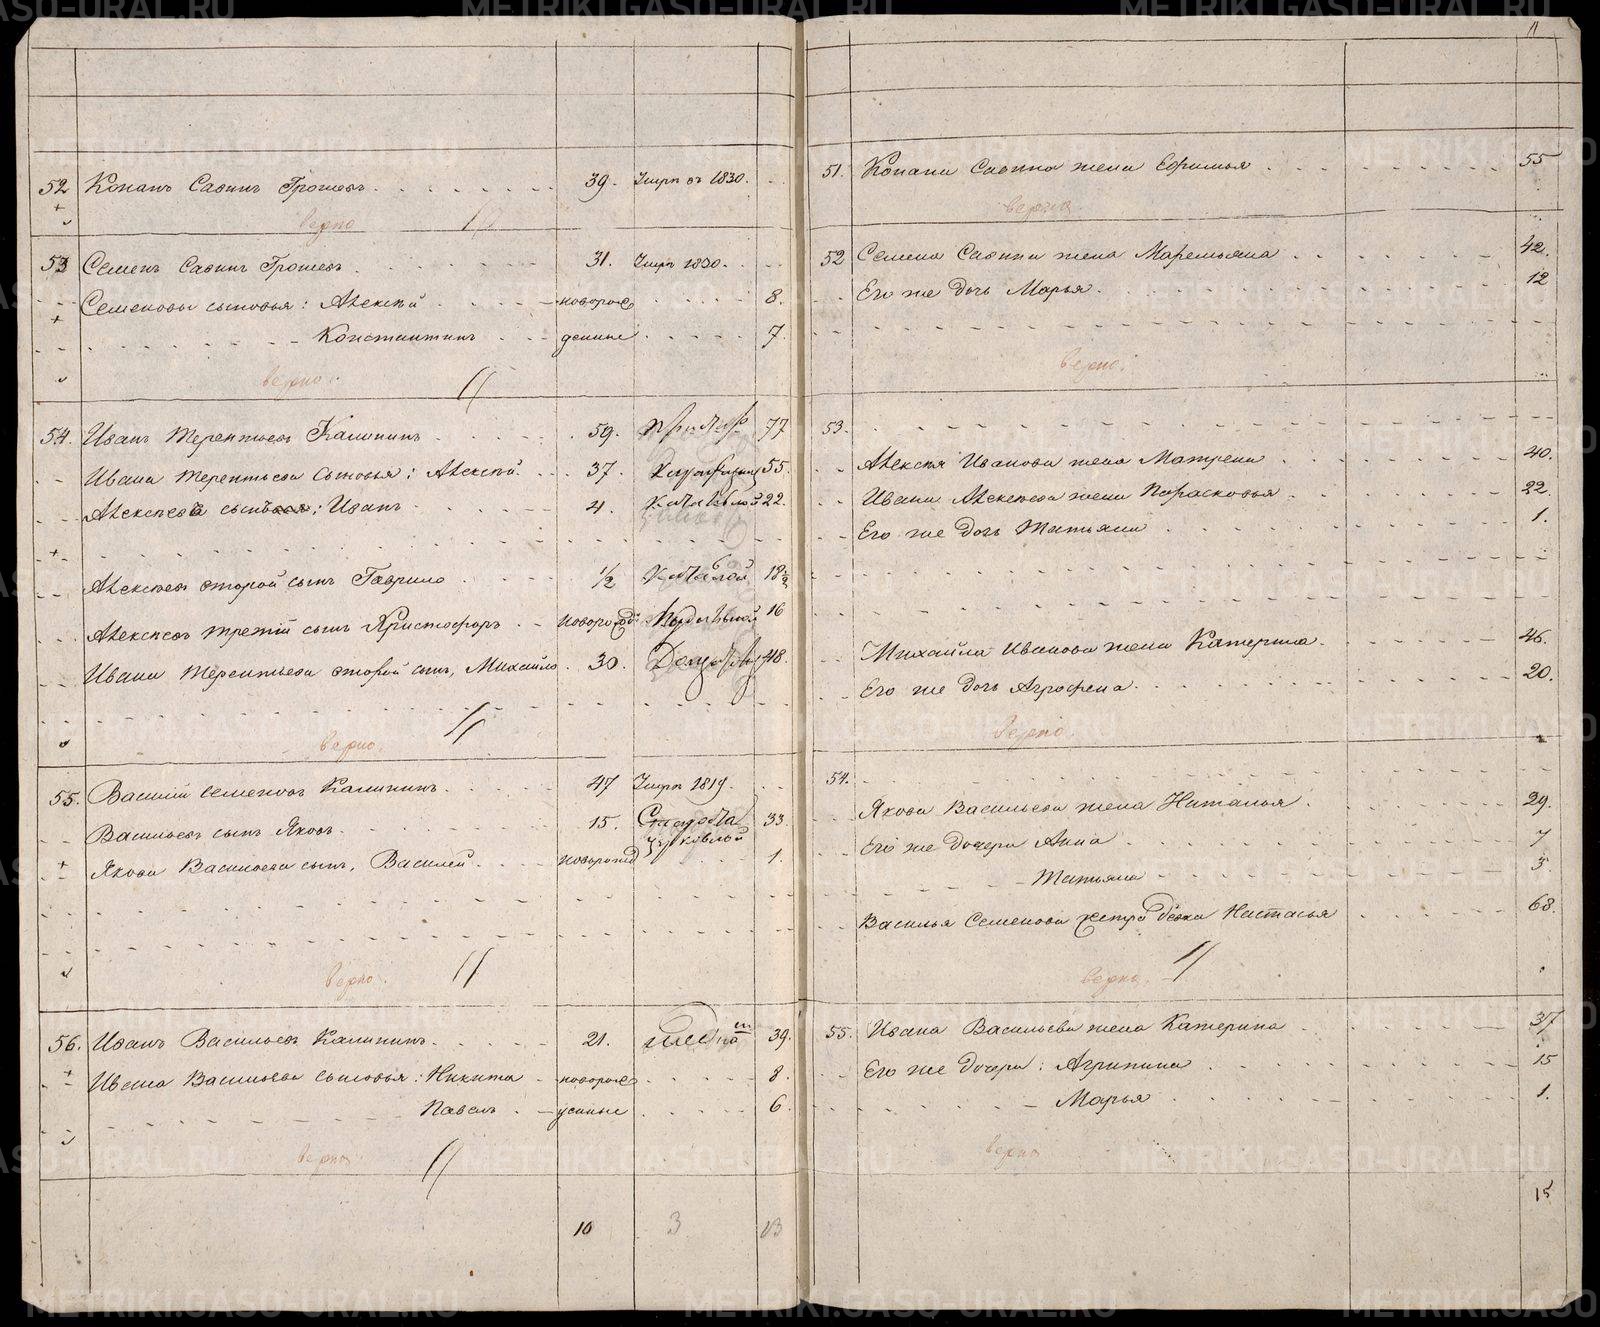 52 Конанъ Савинъ Грошевъ 39. Умръ въ 1830.
верно
53 Семенъ Савинъ Грошевъ 31. Умръ 1830.
Семеновы сыновья: Алексѣй новорож 8.
Константинъ денные 7.
верно.
54. Иванъ Терентьевъ Калининъ 59. 77
Ивана Терентьева сыновья: Алексѣй 37. 55.
Алексѣева сынъ: Иванъ 4. 22.
Алексѣевъ второй сынъ Гаврило 1/2 18 1/2
Алексѣевъ третій сынъ Христофоръ новорожд 16
Ивана Терентьева второй сынъ, Михайло 30. 48.
верно.
55. Василій Семеновъ Калининъ 47 Умръ 1819.
Васильевъ сынъ Яковъ 15. 33.
Якова Васильева сынъ, Василей новорожд 1.
верно.
56. Иванъ Васильевъ Калининъ 21. 39.
Ивана Васильева сыновья: Никита новорож 8.
Павелъ денные 6.
верно
10 3 13
11
51. Конана Савина жена Ефимья 55
верно.
52 Семена Савина жена Маремьяна 42.
Его же дочь Марья 12
верно.
53.
Алексѣя Иванова жена Матрена 40.
Ивана Алексѣева жена Парасковья 22.
Его же дочь Татьяна 1.
Михайла Иванова жена Катерина 46.
Его же дочь Агрофена 20.
верно
54.
Якова Васильева жена Наталья 29.
Его же дочери Анна 7
Татьяна 3.
Василья Семенова сестра девка Настасья 68.
верно.
55. Ивана Васильева жена Катерина 37
Его же дочери: Агрипина 15
Марья 1.
верно
15
METRIKI.GASO-URAL.RU